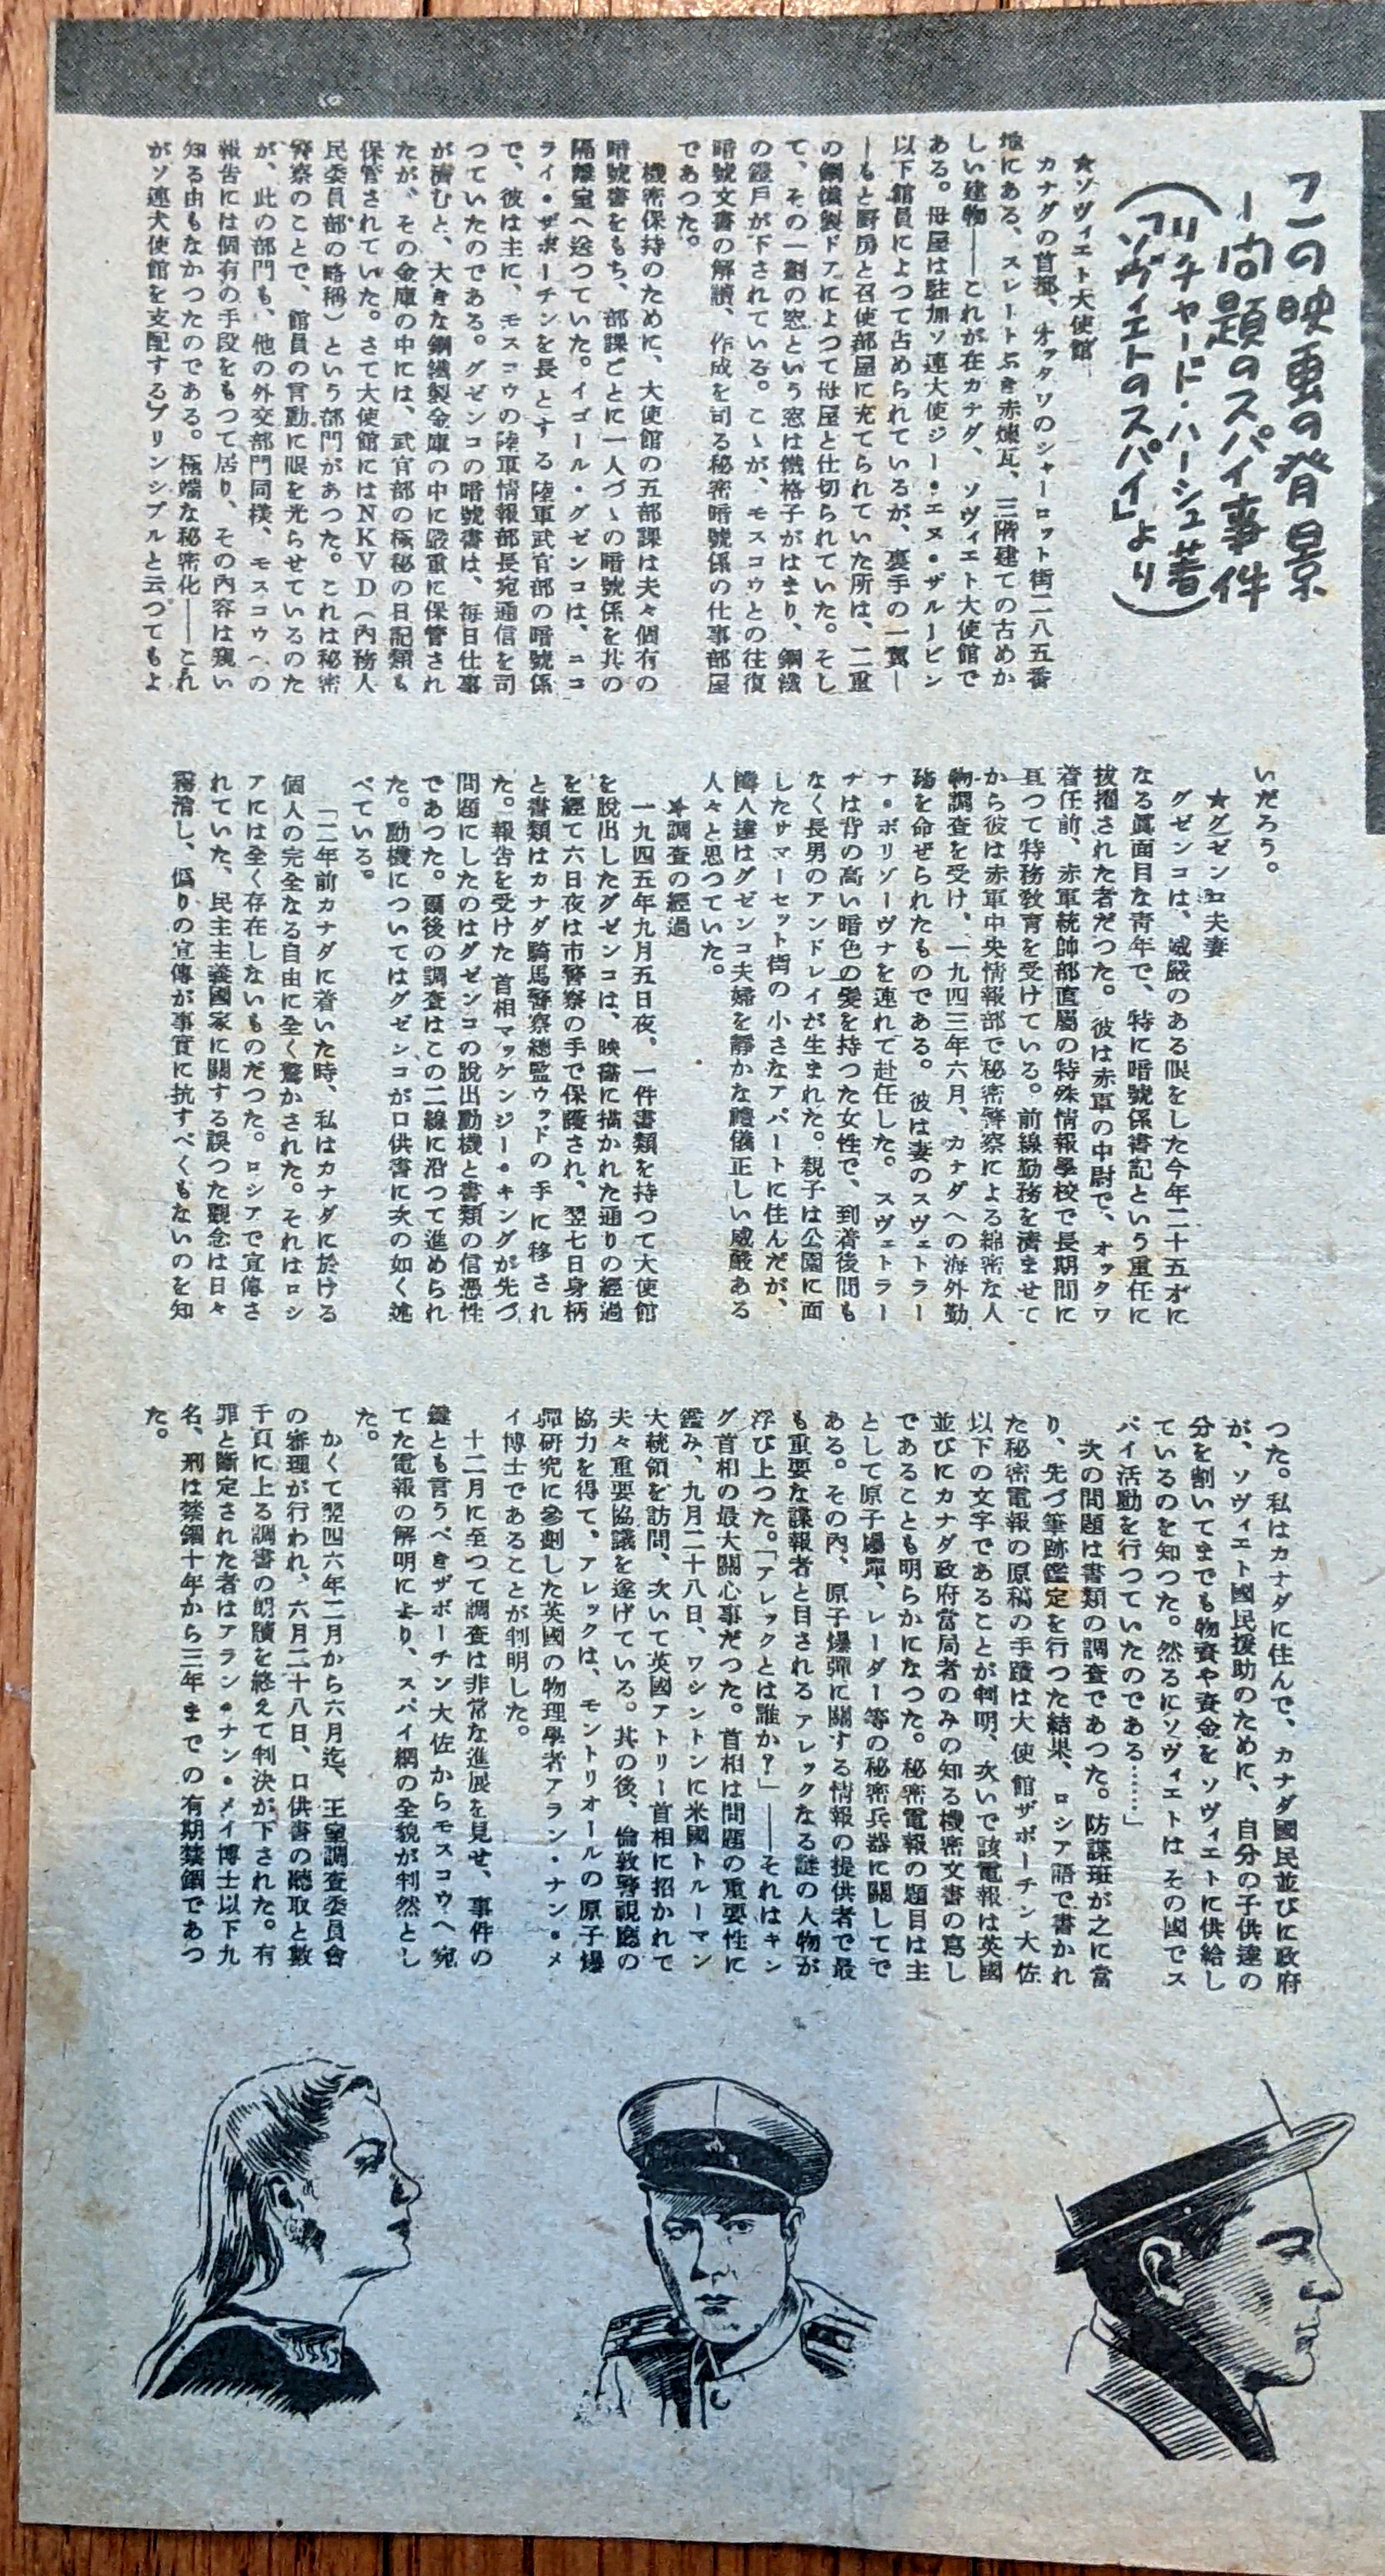 この映画の背景
―問題のスパイ事件
(リチャード・ハーシュ著
「ソヴィエトのスパイ」より)
★ソヴィエト大使館
カナダの首都、オッタワのシャーロット街二八五番
地にある、スレートぶき赤煉瓦、三階建ての古めか
しい建物――これが在カナダ、ソヴィエト大使館で
ある。母屋は駐加ソ連大使ジー・エヌ・ザルービン
以下館員によつて占められているが、裏手の一翼―
―もと厨房と召使部屋に充てられていた所は、二重
の鋼鐵製ドアによつて母屋と仕切られていた。そし
て、その一劃の窓という窓は鐵格子がはまり、鋼鐵
の鎧戸が下されている。こゝが、モスコウとの往復
暗號文書の解讀、作成を司る秘密暗號係の仕事部屋
であつた。
機密保持のために、大使館の五部課は夫々個有の
暗號書をもち、部課ごとに一人づゝの暗號係を共の
隔離室へ送つていた。イゴール・グゼンコは、ニコ
ライ・ザボーチンを長とする陸軍武官部の暗號係
で、彼は主に、モスコウの陸軍情報部長宛通信を司
つていたのである。グゼンコの暗號書は、毎日仕事
が濟むと、大きな鋼鐵製金庫の中に嚴重に保管され
たが、その金庫の中には、武官部の極秘の日記類も
保管されていた。さて大使館にはNKVD(內務人
民委員部の略稱)という部門があつた。これは秘密
警察のことで、館員の言動に眼を光らせているのた
が、此の部門も、他の外交部門同樣、モスコウへの
報告には個有の手段をもつて居り、その內容は窺い
知る由もなかつたのである。極端な秘密化――これ
がソ連大使館を支配するプリンシプルと云つてもよ
いだろう。
★グゼンコ夫妻
グゼンコは、威嚴のある眼をした今年二十五才に
なる眞面目な靑年で、特に暗號係書記という重任に
拔擢された者だつた。彼は赤軍の中尉で、オッタワ
着任前、赤軍統帥部直屬の特殊情報學校で長期間に
亘つて特務敎育を受けている。前線勤務を濟ませて
から彼は赤軍中央情報部で秘密警察による綿密な人
物調査を受け、一九四三年六月、カナダへの海外勤
務を命ぜられたものである。彼は妻のスヴェトラー
ナ・ボリゾーヴナを連れて赴任した。スヴェトラー
ナは背の高い暗色の髮を持つた女性で、到着後間も
なく長男のアンドレイが生まれた。親子は公園に面
したサマーセット街の小さなアパートに住んだが、
隣人達はグゼンコ夫婦を靜かな禮儀正しい威嚴ある
人々と思つていた。
★調査の經過
一九四五年九月五日夜、一件書類を持つて大使館
を脫出したグゼンコは、映畵に描かれた通りの經過
を經て六日夜は市警察の手で保護され、翌七日身柄
と書類はカナダ騎馬警察總監ウッドの手に移され
た。報告を受けた首相マッケンジー・キングが先づ
問題にしたのはグゼンコの脫出動機と書類の信憑性
であつた。爾後の調査はこの二線に沿つて進められ
た。動機についてはグゼンコが口供書に次の如く述
べている。
「二年前カナダに着いた時、私はカナダに於ける
個人の完全なる自由に全く驚かされた。それはロシ
アには全く存在しないものだつた。ロシアで宣傳さ
れていた、民主主義國家に關する誤つた觀念は日々
霧消し、僞りの宣傳が事實に抗すべくもないのを知
つた。私はカナダに住んで、カナダ國民並びに政府
が、ソヴィエト國民援助のために、自分の子供達の
分を割いてまでも物資や資金をソヴィエトに供給し
ているのを知つた。然るにソヴィエトはその國でス
パイ活動を行つていたのである……」
次の問題は書類の調査であつた。防諜班が之に當
り、先づ筆跡鑑定を行つた結果、ロシア語で書かれ
た秘密電報の原稿の手蹟は大使館ザボーチン大佐
以下の文字であることが判明、次いで該電報は英國
並びにカナダ政府當局者のみの知る機密文書の寫し
であることも明らかになつた。秘密電報の題目は主
として原子爆彈、レーダー等の秘密兵器に關してで
ある。その內、原子爆彈に關する情報の提供者で最
も重要な諜報者と目されるアレックなる謎の人物が
浮び上つた。「アレックとは誰か?」――それはキン
グ首相の最大關心事だつた。首相は問題の重要性に
鑑み、九月二十八日、ワシントンに米國トルーマン
大統領を訪問、次いて英國アトリー首相に招かれて
夫々重要協議を遂げている。其の後、倫敦警視廳の
協力を得て、アレックは、モントリオールの原子爆
彈硏究に參劃した英國の物理學者アラン・ナン・メ
イ博士であることが判明した。
十二月に至つて調査は非常な進展を見せ、事件の
鍵とも言うべきザボーチン大佐からモスコウへ宛
てた電報の解明により、スパイ網の全貌が判然とし
た。
かくて翌四六年二月から六月迄、王室調査委員會
の審理が行われ、六月二十八日、口供書の聽取と數
千頁に上る調書の朗讀を終えて判決が下された。有
罪と斷定された者はアラン・ナン・メイ博士以下九
名、刑は禁錮十年から三年までの有期禁錮であつ
た。